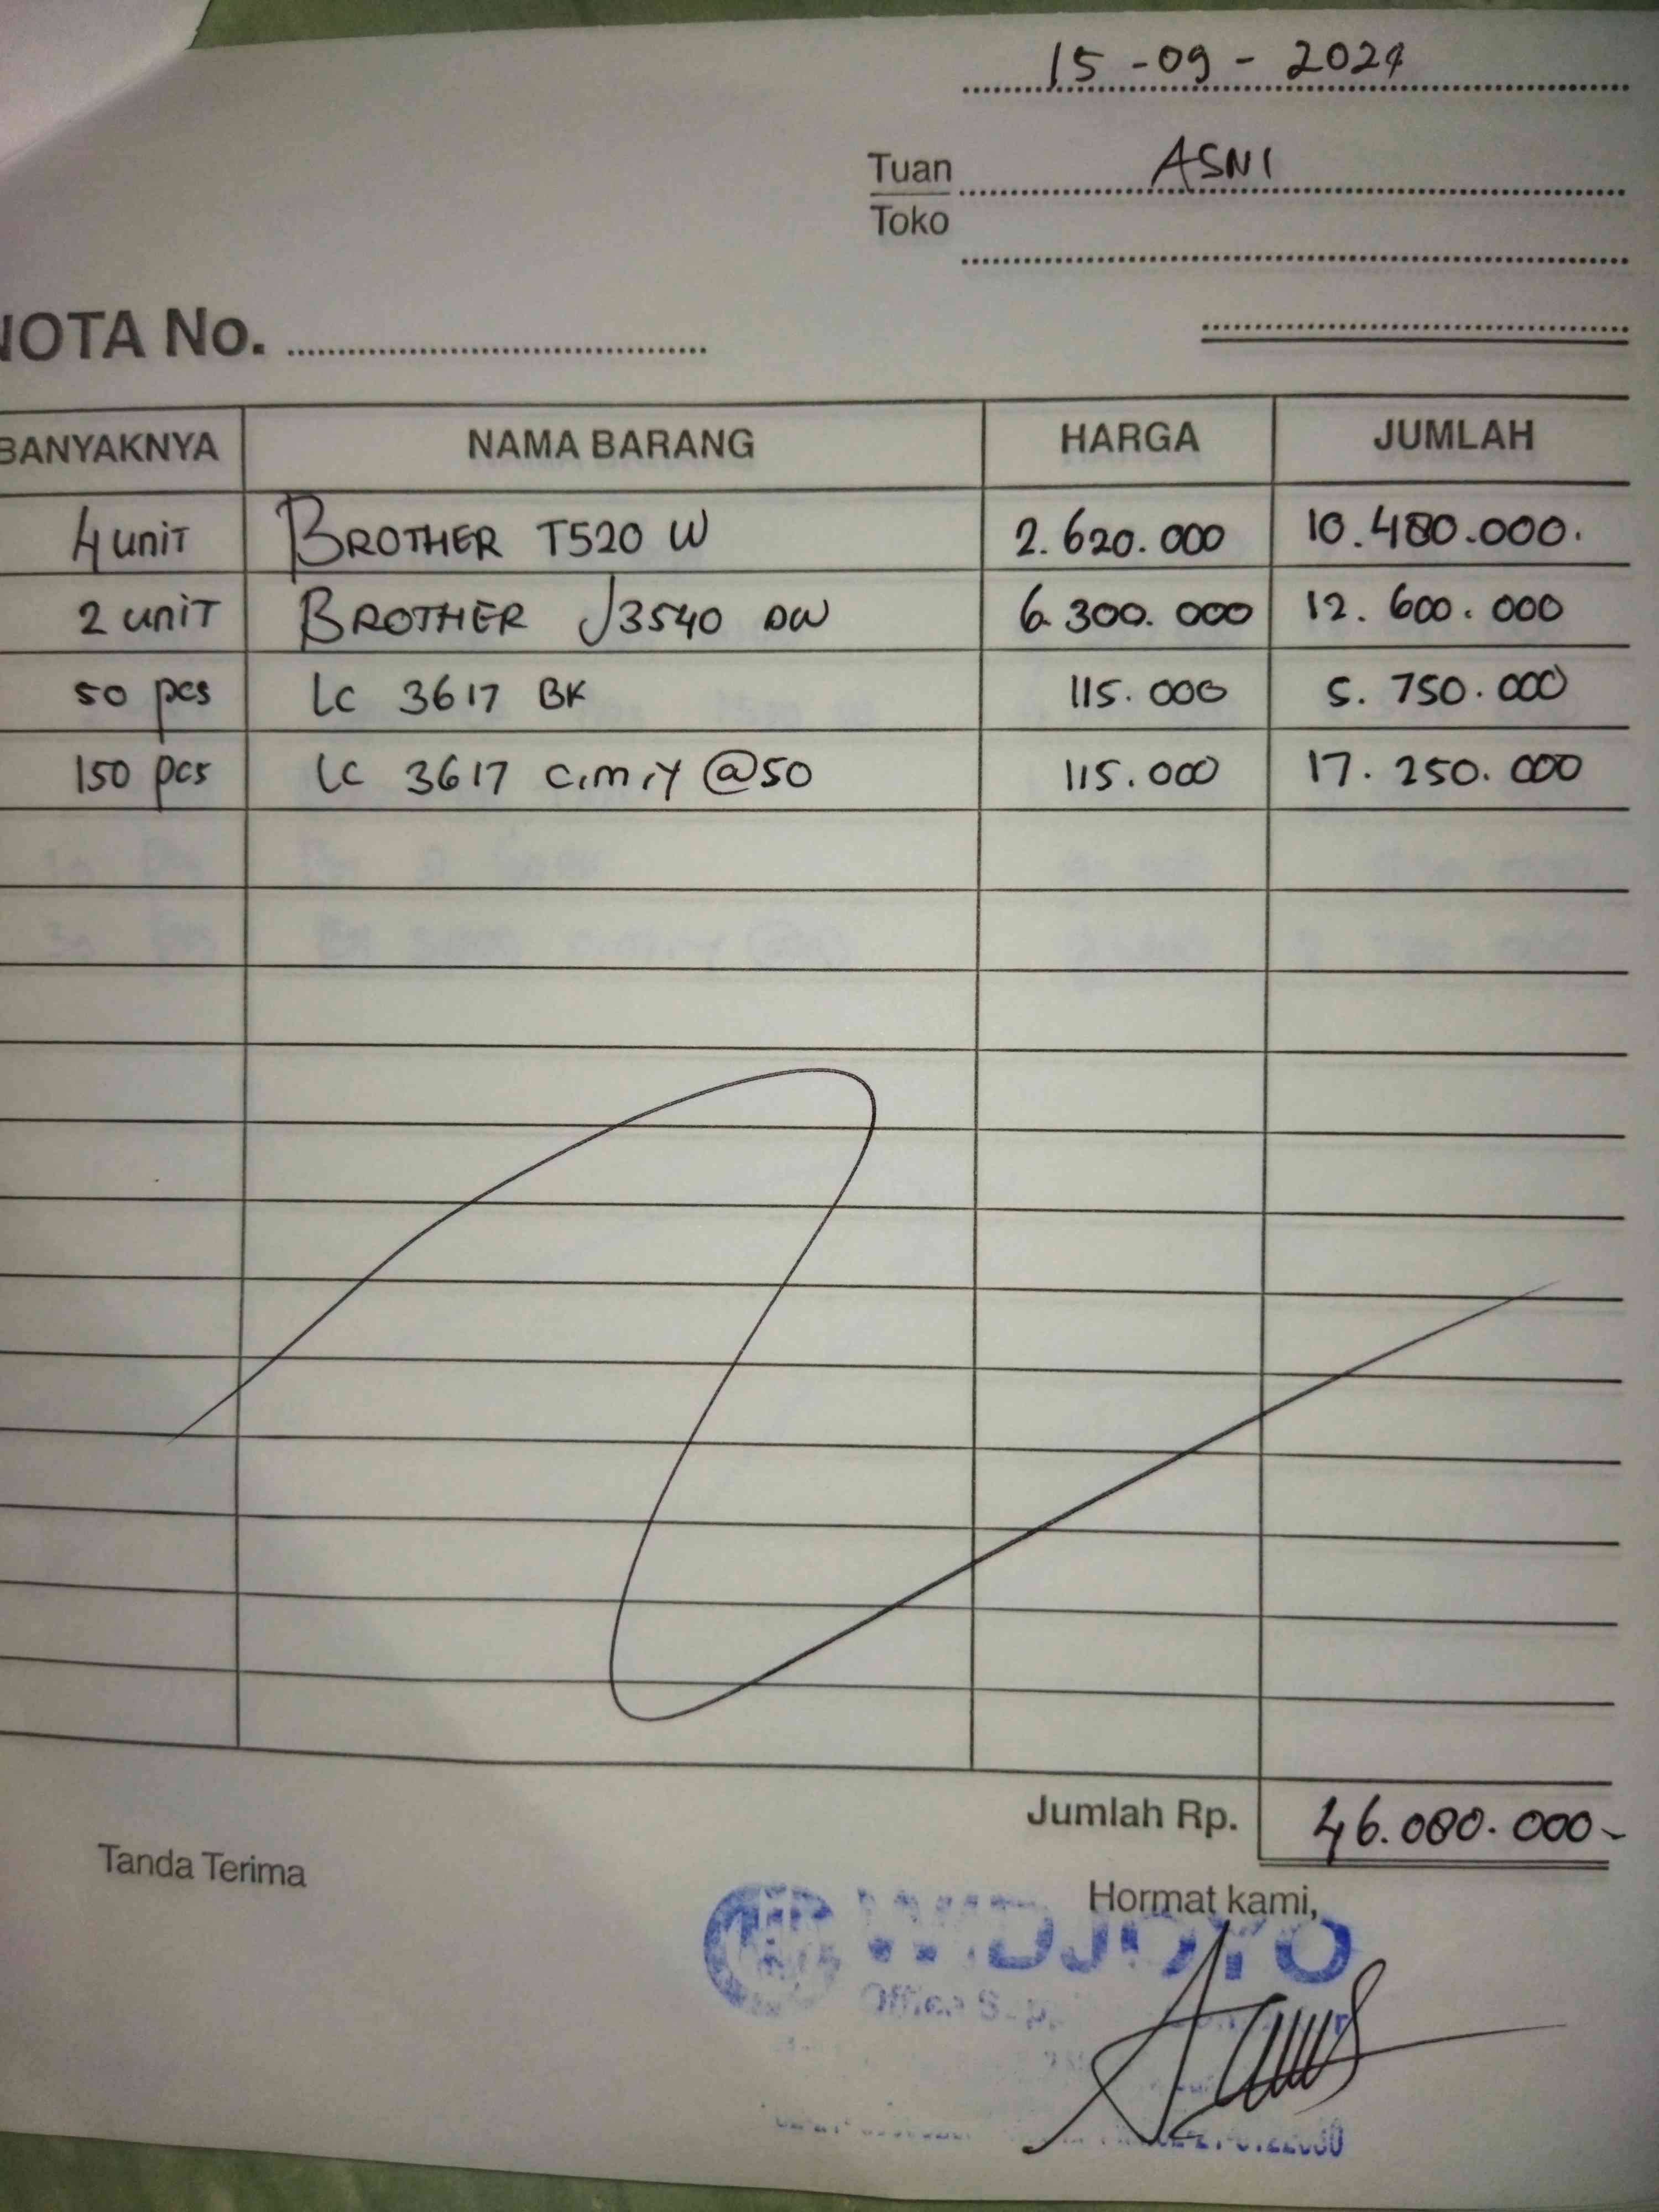 15 - 09 - 2024
Tuan ASNI
Toko
NOTA No.
BANYAKNYA NAMA BARANG HARGA JUMLAH
4 unit BROTHER T520 W 2.620.000 10.480.000.
2 unit BROTHER J3540 DW 6.300.000 12.600.000
50 pcs LC 3617 BK 115.000 5.750.000
150 pcs LC 3617 c.m.y @50 115.000 17.250.000
Jumlah Rp. 46.080.000-
Tanda Terima
Hormat kami,
WIDJOYO
Office